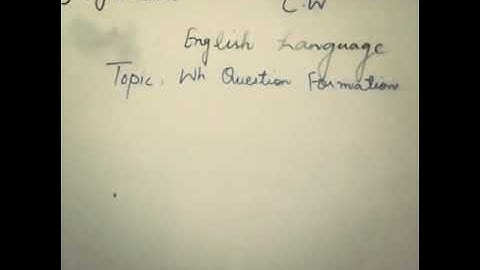 C.W
English Language
Topic. Wh Question Formation